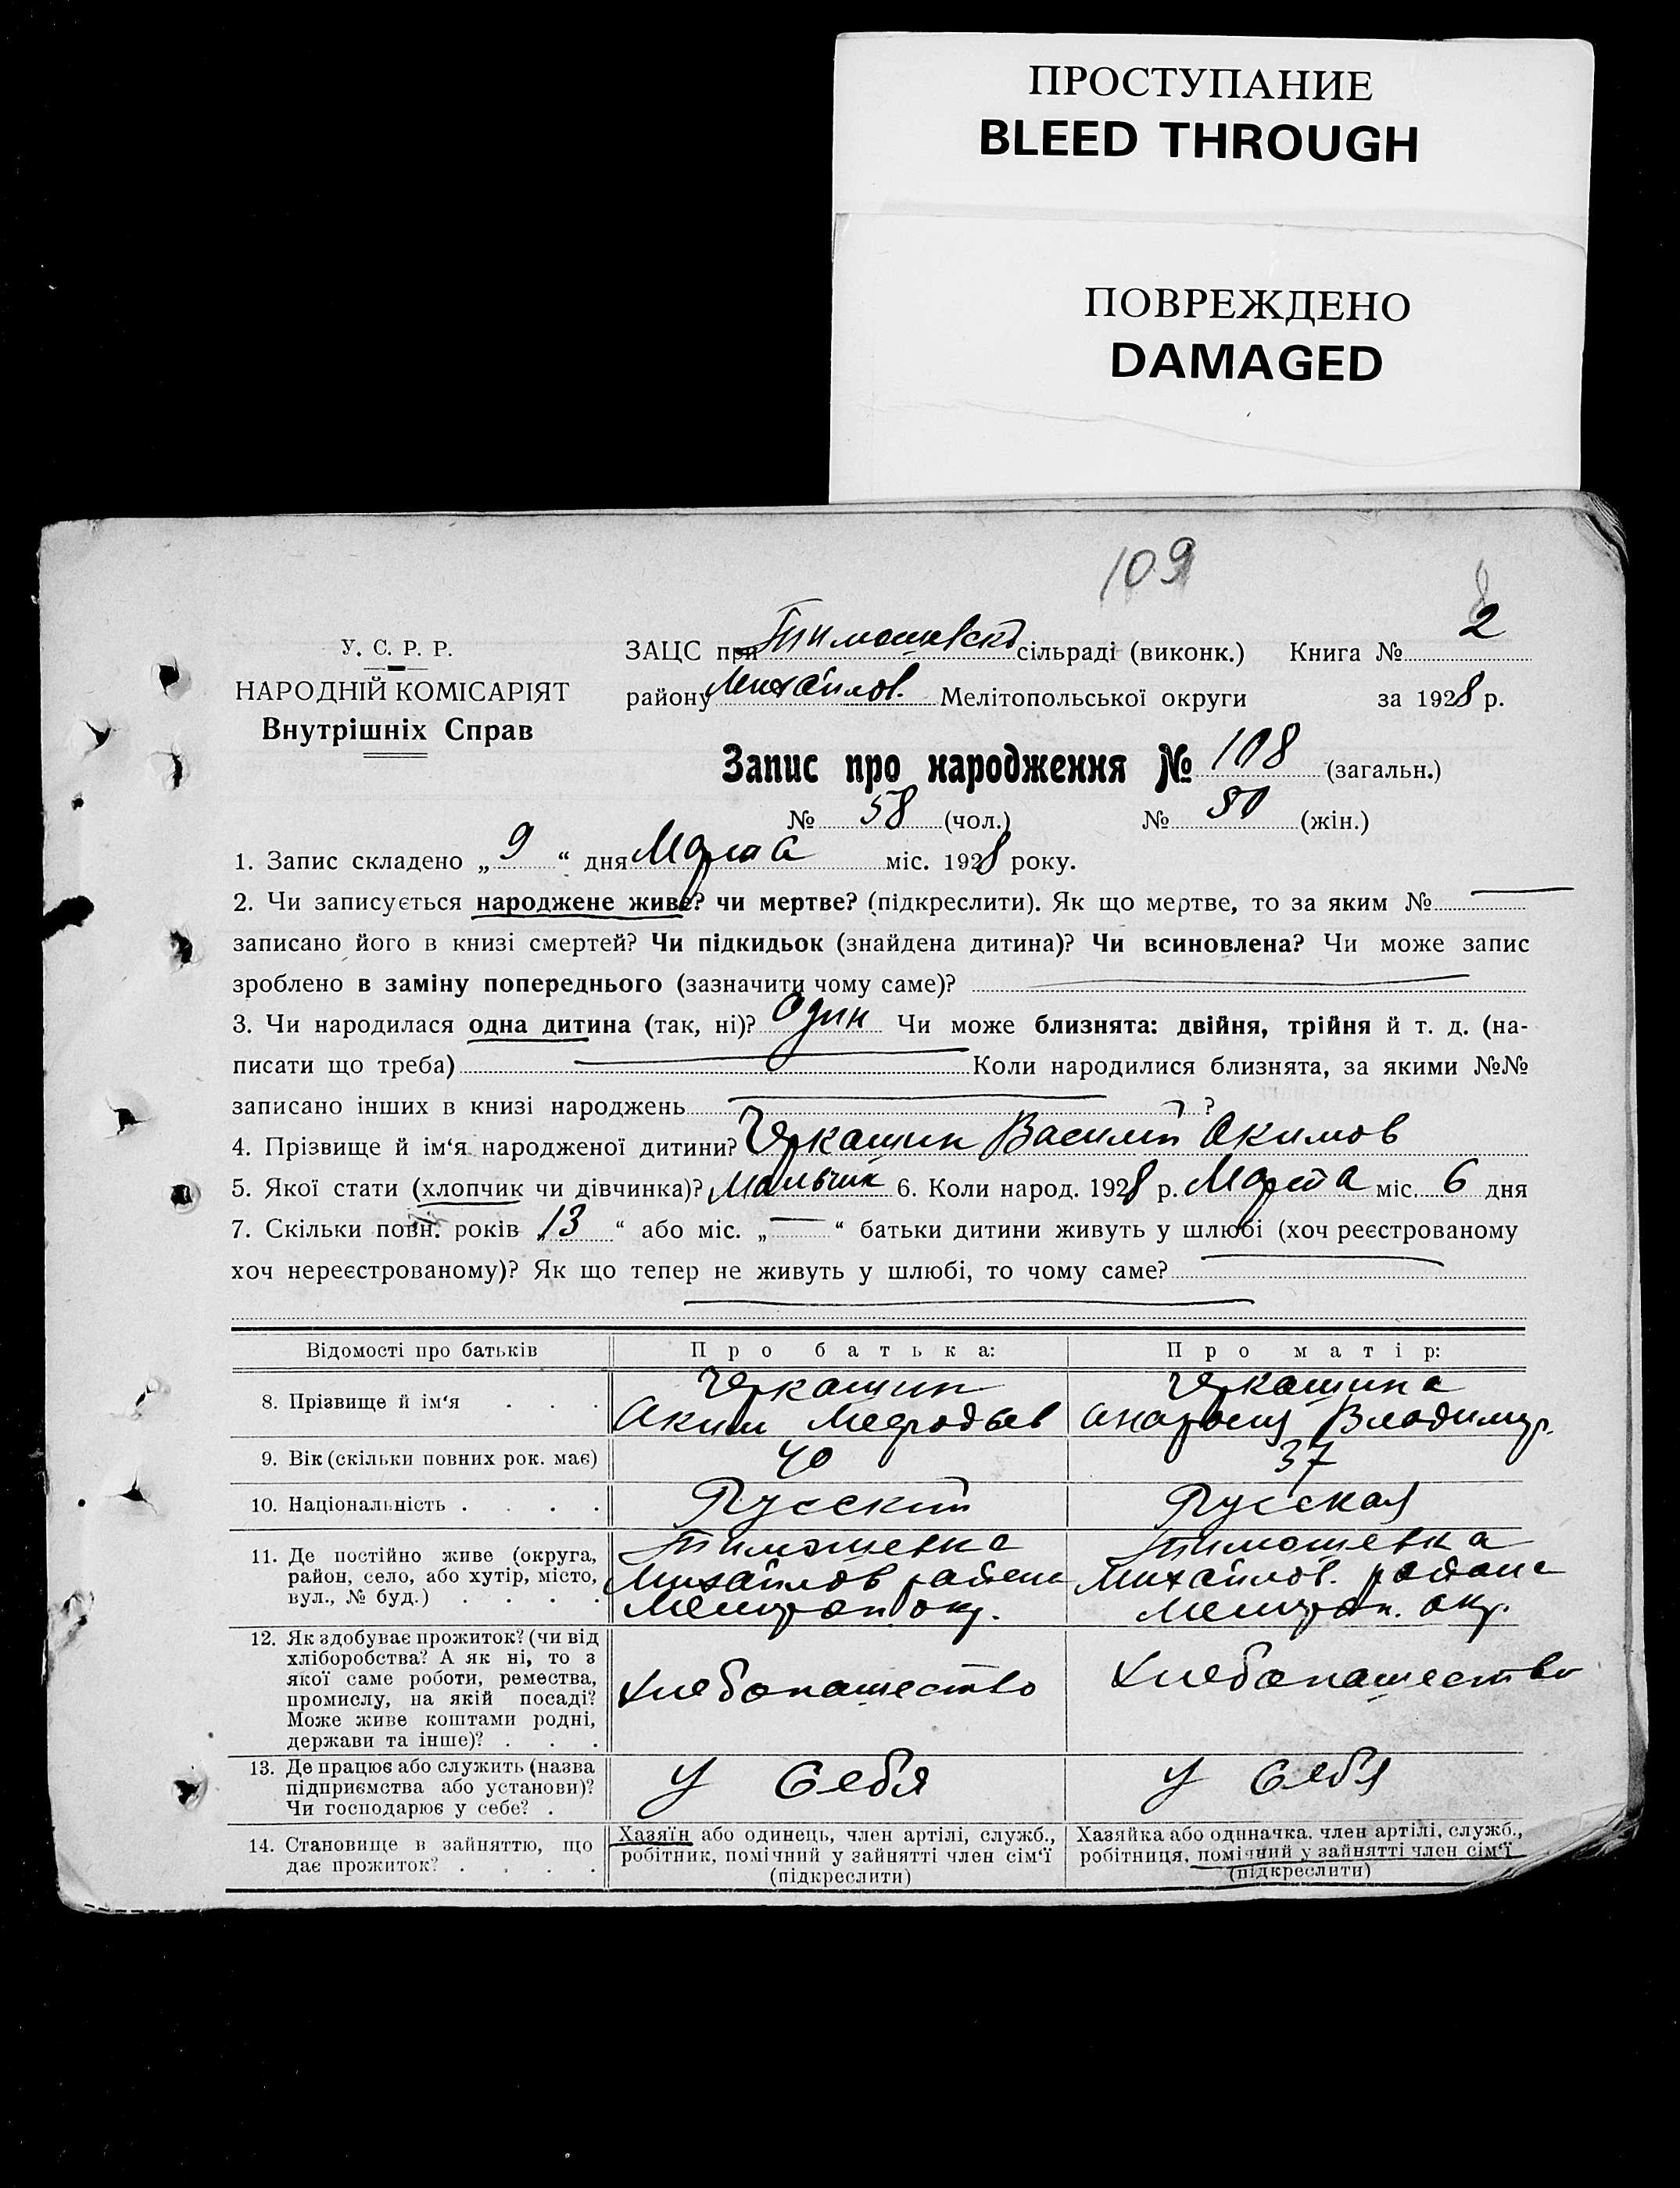 ПРОСТУПАНИЕ
BLEED THROUGH
ПОВРЕЖДЕНО
DAMAGED
109
У. С. Р. Р.
НАРОДНІЙ КОМІСАРІЯТ
Внутрішніх Справ
ЗАЦС при Тимошевско сільраді (виконк.) Книга № 2
району Михайлов. Мелітопольської округи за 1928 р.
Запис про народження № 108 (загальн.)
№ 58 (чол.) № 50 (жін.)
1. Запис складено „ 9 “ дня Марта міс. 1928 року.
2. Чи записується народжене живе? чи мертве? (підкреслити). Як що мертве, то за яким №
записано його в книзі смертей? Чи підкидьок (знайдена дитина)? Чи всиновлена? Чи може запис
зроблено в заміну попереднього (зазначити чому саме)?
3. Чи народилася одна дитина (так, ні)? Один Чи може близнята: двійня, трійня й т. д. (на-
писати що треба) Коли народилися близнята, за якими №№
записано інших в книзі народжень ?
4. Прізвище й ім‘я народженої дитини? Черкашин Василий Акимов
5. Якої стати (хлопчик чи дівчинка)? Мальчик 6. Коли народ. 1928 р. Марта міс. 6 дня
7. Скільки повн. років „ 13 “ або міс. „ “ батьки дитини живуть у шлюбі (хоч реєстрованому
хоч нереєстрованому)? Як що тепер не живуть у шлюбі, то чому саме?
Відомості про батьків Про батька: Про матір:
8. Прізвище й ім‘я . . . Черкашин Аким Мефодьев Черкашина Владимир.
9. Вік (скільки повних рок. має) 40 37
10. Національність . . . . Русский Русская
11. Де постійно живе (округа,
район, село, або хутір, місто,
вул., № буд.) . . . .
Тимошевка
Михайлов района
Мелитоп окр.
Тимошевка
Михайлов. района
Мелитоп. окр.
12. Як здобуває прожиток? (чи від
хліборобства? А як ні, то з
якої саме роботи, ремества,
промислу, на якій посаді?
Може живе коштами родні,
держави та інше)? . . .
Хлебопашество
Хлебопашество
13. Де працює або служить (назва
підприємства або установи)?
Чи господарює у себе? .
У Себя
У Себя
14. Становище в зайняттю, що
дає прожиток? . . . .
Хазяїн або одинець, член артілі, служб.,
робітник, помічний у зайнятті член сім‘ї
(підкреслити)
Хазяйка або одиначка. член артілі, служб.,
робітниця, помічний у зайнятті член сім‘ї
(підкреслити)